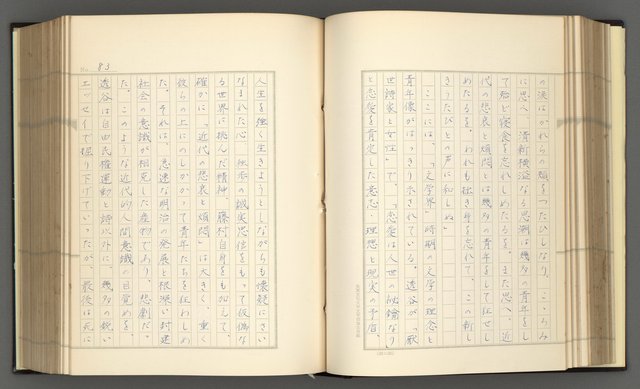 の涙はかれらの頬をつたひしなり。こゝろみ
に思へ、清新横溢なる思潮は幾多の青年をし
て殆ど寝食を忘れしめたるを。また思へ、近
代の悲哀と煩悶とは幾多の青年をして狂せし
めたるを。われも拙き身を忘れて、この新し
きうたびとの声に和しぬ」
ここには、「文学界」時期の文学の理念と
青年像がはっきり示されている。透谷が「厭
世詩家と女性」で、「恋愛は人世の秘鑰なり
と恋愛を肯定した意志・理想と現実の矛盾、
No. 83
人生を強く生きようとしながらも懐疑にさい
なまれた心、独歩の誠実思信をもって仮偽な
る世界に挑んだ精神、藤村自身をも加えて、
確かに「近代の悲哀と煩悶」は大きく、重く
彼らの上にのしかかって青年たちを狂わしめ
た。それは、急速な明治の発展と根深い封建
社会の意識が相克した産物であり、悲劇だっ
た。このような近代的人間意識の目覚めを、
透谷は自由民権運動と詩以外に、幾多の鋭い
エッセイで掘り下げていったが、最後は死に